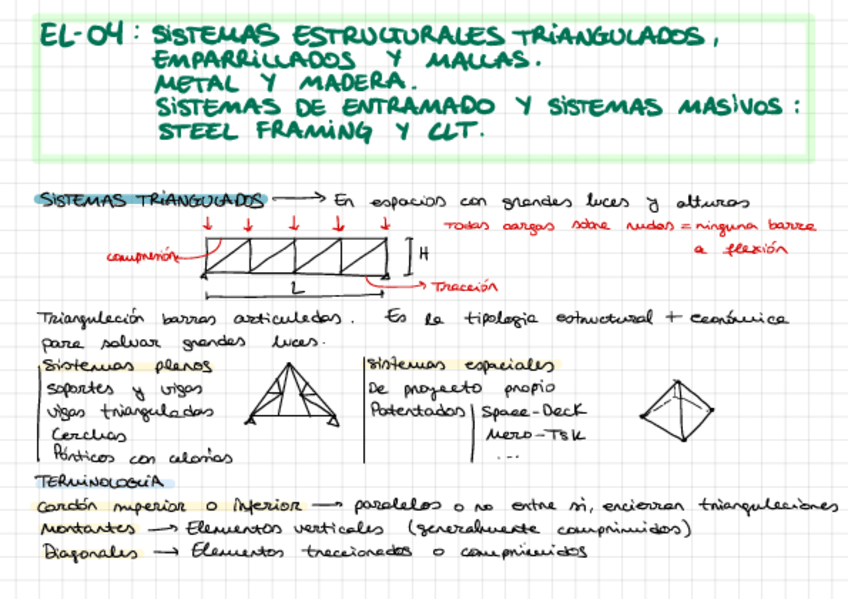 EL-04: SISTEMAS ESTRUCTURALES TRIANGULADOS,
EMPARRILLADOS Y MALLAS.
METAL Y MADERA.
SISTEMAS DE ENTRAMADO Y SISTEMAS MASIVOS:
STEEL FRAMING Y CLT.
SISTEMAS TRIANGULADOS → En espacios con grandes luces y alturas
Todas cargas sobre nudos = ninguna barra
a flexión
compresión
H
L
Tracción
Triangulación barras articuladas. Es la tipologia estructural + económica
para salvar grandes luces.
Sistemas planos
soportes y vigas
vigas trianguladas
Cerchas
Pórticos con celosías
Sistemas espaciales
De proyecto propio
Patentados | Space-Deck
Mero-TSK
...
TERMINOLOGÍA
Cordón superior o inferior → paralelos o no entre si, encierran triangulaciones
Montantes → Elementos verticales (generalmente comprimidos)
Diagonales → Elementos traccionados o comprimidos